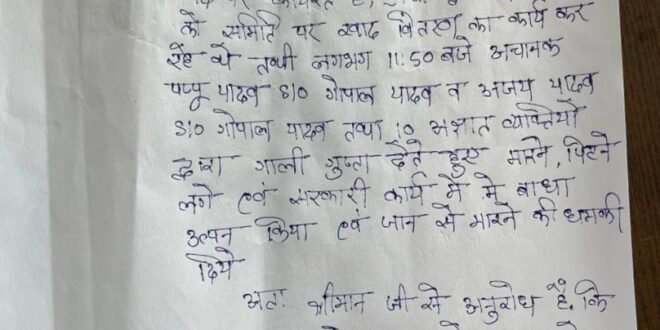 को समिति पर खाद वितरण का कार्य कर
रहे थे तभी लगभग 11:50 बजे अचानक
पप्पू यादव S/O गोपाल यादव व अजय यादव
S/O गोपाल यादव तथा 10 अज्ञात व्यक्तियों
द्वारा गाली गुप्ता देते हुए मारने, पिटने
लगे एवं सरकारी कार्य में मे बाधा
उत्पन किया एवं जान से मारने की धमकी
दिये
अतः श्रीमान जी से अनुरोध है, कि